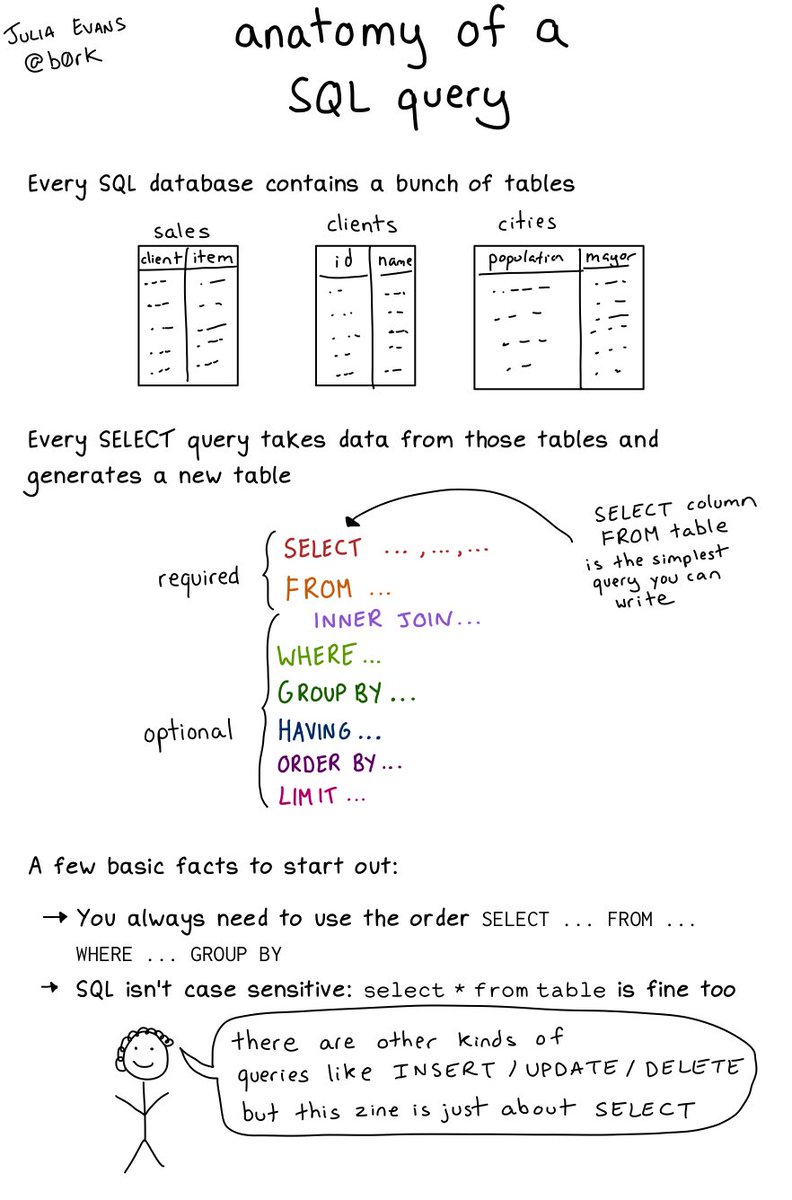 JULIA EVANS
@b0rk
anatomy of a
SQL query
Every SQL database contains a bunch of tables
sales
client item
clients
id name
cities
population mayor
Every SELECT query takes data from those tables and
generates a new table
SELECT column
FROM table
is the simplest
query you can
write
required
SELECT ...,...,...
FROM ...
optional
INNER JOIN...
WHERE ...
GROUP BY ...
HAVING ...
ORDER BY...
LIMIT ...
A few basic facts to start out:
→ You always need to use the order SELECT ... FROM ...
WHERE ... GROUP BY
→ SQL isn't case sensitive: select * from table is fine too
there are other kinds of
queries like INSERT / UPDATE / DELETE
but this zine is just about SELECT